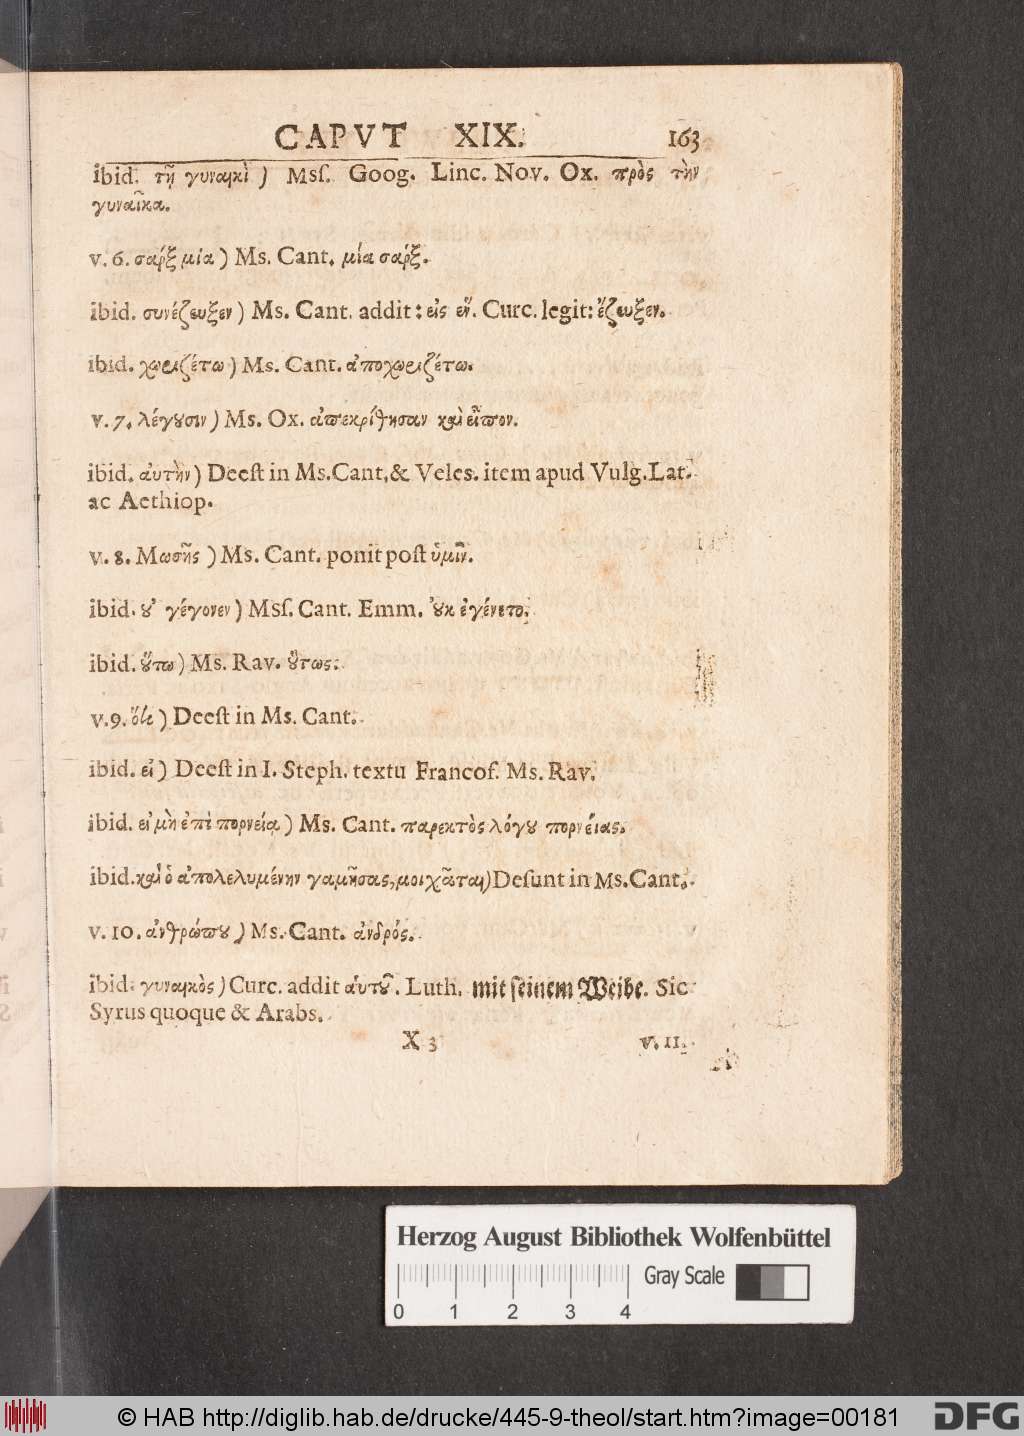 CAPVT XIX. 163
ibid. τῇ γυναικὶ) Mſſ. Goog. Linc. Nov. Ox. πρὸς τὴν
γυναῖκα.
v. 6. σὰρξ μία) Ms. Cant. μία σάρξ.
ibid. συνέζευξεν) Ms. Cant. addit: εἰς ἕν. Curc. legit: ἔζευξεν.
ibid. χωριζέτω) Ms. Cant. ἀποχωριζέτω.
v. 7. λέγουσιν) Ms. Ox. ἀπεκρίθησαν καὶ εἶπον.
ibid. ἀυτὴν) Deeſt in Ms. Cant. & Veleſ. item apud Vulg. Lat.
ac Aethiop.
v. 8. Μωσῆς) Ms. Cant. ponit poſt ὑμῖν.
ibid. ȣ̓ γέγονεν) Mſſ. Cant. Emm. ȣ̓κ ἐγένετο.
ibid. ȣ̔́τω) Ms. Rav. ȣ̔́τως.
v. 9. ὅτι) Deeſt in Ms. Cant.
ibid. εἰ) Deeſt in I. Steph. textu Francof. Ms. Rav.
ibid. εἰ μὴ ἐπὶ πορνείᾳ) Ms. Cant. παρεκτὸς λόγȣ πορνείας.
ibid. καὶ ὁ ἀπολελυμένην γαμήσας, μοιχᾶται) Deſunt in Ms. Cant.
v. 10. ἀνθρώπȣ) Ms. Cant. ἀνδρός.
ibid. γυναικὸς) Curc. addit ἁυτȣ͂. Luth. mit ſeinem Weibe. Sic
Syrus quoque & Arabs.
X 3 v. 11.
Herzog August Bibliothek Wolfenbüttel
Gray Scale
0 1 2 3 4
© HAB http://diglib.hab.de/drucke/445-9-theol/start.htm?image=00181 DFG